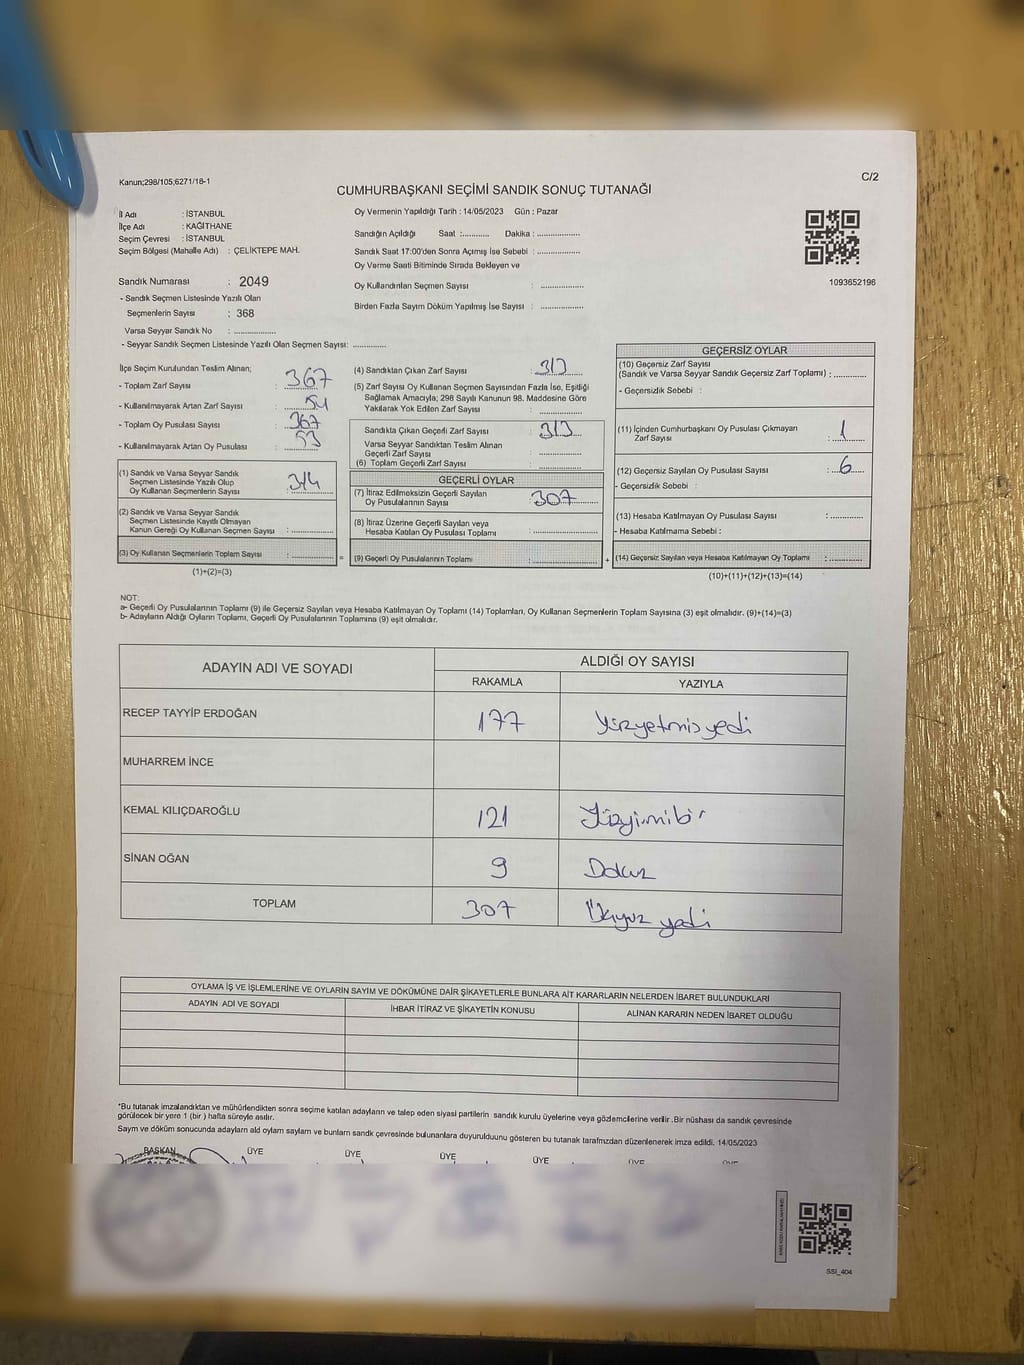 Kanun;298/105;6271/18-1
C/2
CUMHURBAŞKANI SEÇİMİ SANDIK SONUÇ TUTANAĞI
İl Adı : İSTANBUL
İlçe Adı : KAĞITHANE
Seçim Çevresi : İSTANBUL
Seçim Bölgesi (Mahalle Adı) : ÇELİKTEPE MAH.
Sandık Numarası : 2049
- Sandık Seçmen Listesinde Yazılı Olan
Seçmenlerin Sayısı : 368
Varsa Seyyar Sandık No : ..............
- Seyyar Sandık Seçmen Listesinde Yazılı Olan Seçmen Sayısı: ...........
Oy Vermenin Yapıldığı Tarih : 14/05/2023 Gün : Pazar
Sandığın Açıldığı Saat :.......... Dakika : ..............
Sandık Saat 17:00'den Sonra Açımış İse Sebebi : ..............
Oy Verme Saati Bitiminde Sırada Bekleyen ve
Oy Kullandırılan Seçmen Sayısı : ..............
Birden Fazla Sayım Döküm Yapılmış İse Sayısı : ..............
1093652196
İlçe Seçim Kurulundan Teslim Alınan;
- Toplam Zarf Sayısı : 367
- Kullanılmayarak Artan Zarf Sayısı : 54
- Toplam Oy Pusulası Sayısı : 367
- Kullanılmayarak Artan Oy Pusulası : 53
(1) Sandık ve Varsa Seyyar Sandık
Seçmen Listesinde Yazılı Olup
Oy Kullanan Seçmenlerin Sayısı : 314
(2) Sandık ve Varsa Seyyar Sandık
Seçmen Listesinde Kayıtlı Olmayan
Kanun Gereği Oy Kullanan Seçmen Sayısı : ..............
(3) Oy Kullanan Seçmenlerin Toplam Sayısı : ..............
(1)+(2)=(3)
(4) Sandıktan Çıkan Zarf Sayısı : 313
(5) Zarf Sayısı Oy Kullanan Seçmen Sayısından Fazla İse, Eşitliği
Sağlamak Amacıyla; 298 Sayılı Kanunun 98. Maddesine Göre
Yakılarak Yok Edilen Zarf Sayısı : ..............
Sandıkta Çıkan Geçerli Zarf Sayısı : 313
Varsa Seyyar Sandıktan Teslim Alınan
Geçerli Zarf Sayısı : ..............
(6) Toplam Geçerli Zarf Sayısı : ..............
GEÇERLİ OYLAR
(7) İtiraz Edilmeksizin Geçerli Sayılan
Oy Pusulalarının Sayısı : 307
(8) İtiraz Üzerine Geçerli Sayılan veya
Hesaba Katılan Oy Pusulaları Toplamı : ..............
= (9) Geçerli Oy Pusulalarının Toplamı : ..............
GEÇERSİZ OYLAR
(10) Geçersiz Zarf Sayısı
(Sandık ve Varsa Seyyar Sandık Geçersiz Zarf Toplamı) : ...........
- Geçersizlik Sebebi :
(11) İçinden Cumhurbaşkanı Oy Pusulası Çıkmayan
Zarf Sayısı : 1
(12) Geçersiz Sayılan Oy Pusulası Sayısı : 6
- Geçersizlik Sebebi :
(13) Hesaba Katılmayan Oy Pusulası Sayısı : ...........
- Hesaba Katılmama Sebebi :
+ (14) Geçersiz Sayılan veya Hesaba Katılmayan Oy Toplamı : ...........
(10)+(11)+(12)+(13)=(14)
NOT:
a- Geçerli Oy Pusulalarının Toplamı (9) ile Geçersiz Sayılan veya Hesaba Katılmayan Oy Toplamı (14) Toplamları, Oy Kullanan Seçmenlerin Toplam Sayısına (3) eşit olmalıdır. (9)+(14)=(3)
b- Adayların Aldığı Oyların Toplamı, Geçerli Oy Pusulalarının Toplamına (9) eşit olmalıdır.
ADAYIN ADI VE SOYADI
ALDIĞI OY SAYISI
RAKAMLA YAZIYLA
RECEP TAYYİP ERDOĞAN 177 Yüzyetmişyedi
MUHARREM İNCE
KEMAL KILIÇDAROĞLU 121 Yüzyirmibir
SİNAN OĞAN 9 Dokuz
TOPLAM 307 Üçyüz yedi
OYLAMA İŞ VE İŞLEMLERİNE VE OYLARIN SAYIM VE DÖKÜMÜNE DAİR ŞİKAYETLERLE BUNLARA AİT KARARLARIN NELERDEN İBARET BULUNDUKLARI
ADAYIN ADI VE SOYADI İHBAR İTİRAZ VE ŞİKAYETİN KONUSU ALINAN KARARIN NEDEN İBARET OLDUĞU
*Bu tutanak imzalandıktan ve mühürlendikten sonra seçime katılan adayların ve talep eden siyasi partilerin sandık kurulu üyelerine veya gözlemcilerine verilir. Bir nüshası da sandık çevresinde
görülecek bir yere 1 (bir ) hafta süreyle asılır.
Sayım ve döküm sonucunda adayların aldı oyların sayların ve bunların sandk çevresinde bulunanlara duyurulduunu gösteren bu tutanak tarafmzdan düzenlenerek imza edildi. 14/05/2023
BAŞKAN ÜYE ÜYE ÜYE ÜYE ÜYE ÜYE
SSI_404